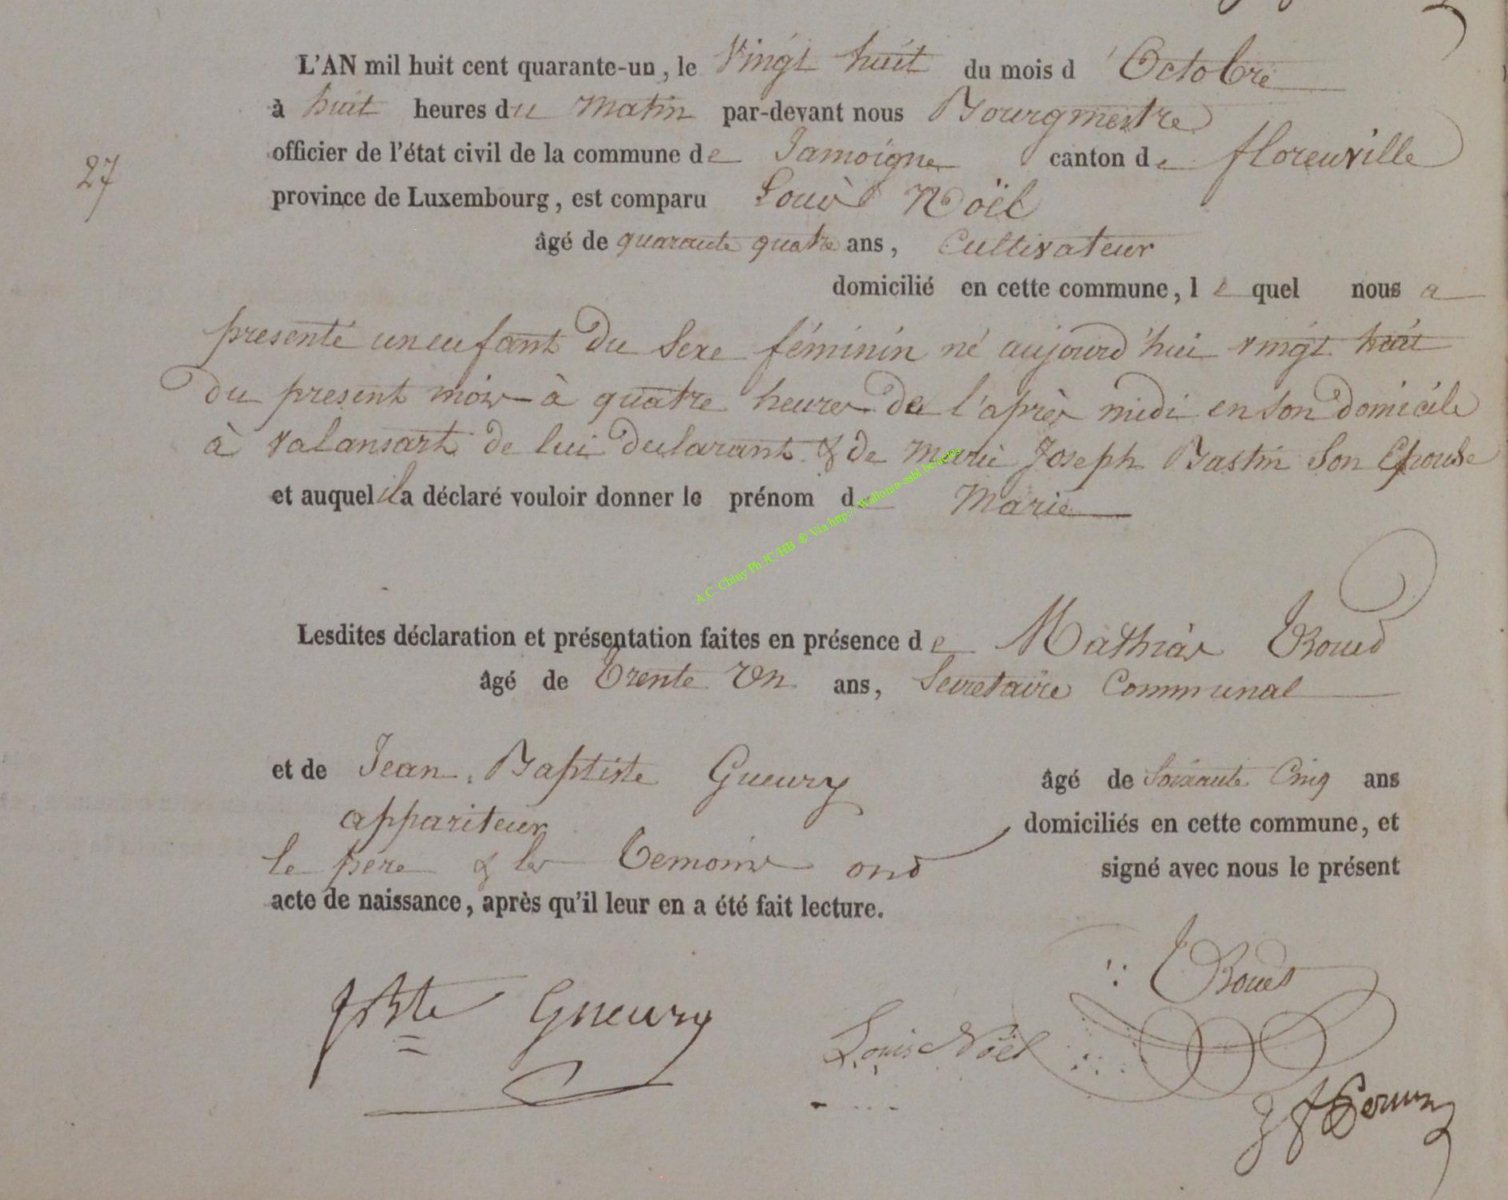 L'AN mil huit cent quarante-un, le Vingt huit du mois d'Octobre
à huit heures du Matin par-devant nous Bourgmestre
officier de l'état civil de la commune de Jamoigne canton de florenville
27
province de Luxembourg, est comparu Louis Noël
âgé de quarante quatre ans, Cultivateur
domicilié en cette commune, le quel nous a
présenté un enfant du sexe féminin né aujourd'hui vingt huit
du present mois à quatre heures de l'après midi en son domicile
à valansart de lui declarant & de marie Joseph Bastin Son Epouse
et auquel il a déclaré vouloir donner le prénom de Marie
A.C Chiny Ph. JC/HB © Via http://
Lesdites déclaration et présentation faites en présence de Mathias
âgé de trente Un ans, Secretaire Communal
et de Jean Baptiste Gueury âgé de Soixante Cinq ans
appariteur domiciliés en cette commune, et
le père & les temoins ont signé avec nous le présent
acte de naissance, après qu'il leur en a été fait lecture.
JBte Gueury
Louis Noël